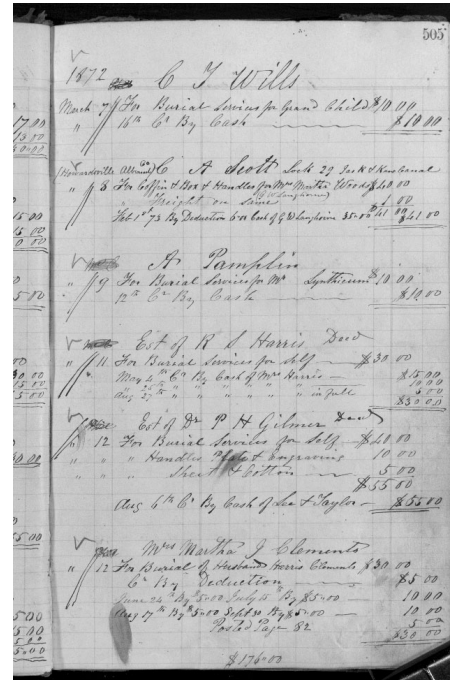 505
1872 C T Wills
March 7 For Burial Services for Grand Child $10.00
" 16th Cr By Cash $10.00
(Howardsville Albemarle Co) C A Scott Lock 29 Jas R & Kan Canal
" 8 For Coffin & Box & Handles for Mrs Martha Woods $40.00
" Freight on Same 1.00
Feb 1st 73 By Deduction 6.00 Cash of G W Langhorne 35.00 $41.00
A Pamplin
" 9 For Burial Services for Mr Lynthicum $10.00
" 12th Cr By Cash $10.00
Est of R S Harris Decd
" 11 For Burial Services for Self $30.00
May 4th Cr By Cash of Mrs Harris $15.00
" 25th " " " " " 10.00
Aug 27th " " " " " in full 5.00
$30.00
Est of Dr P H Gilmer Decd
" 12 For Burial Services for Self $40.00
" " " Handles Plate & Engraving 10.00
" " " Sheet & Cotton 5.00
$55.00
Aug 6th Cr By Cash of Lee & Taylor $55.00
Mrs Martha J Clements
" 12 For Burial of Husband Harris Clements $30.00
Cr By Deduction $5.00
June 24th By $5.00 July 15th By $5.00 10.00
Aug 17th By $5.00 Sept 30 By $5.00 10.00
Posted Page 82 5.00
$30.00
$176.00